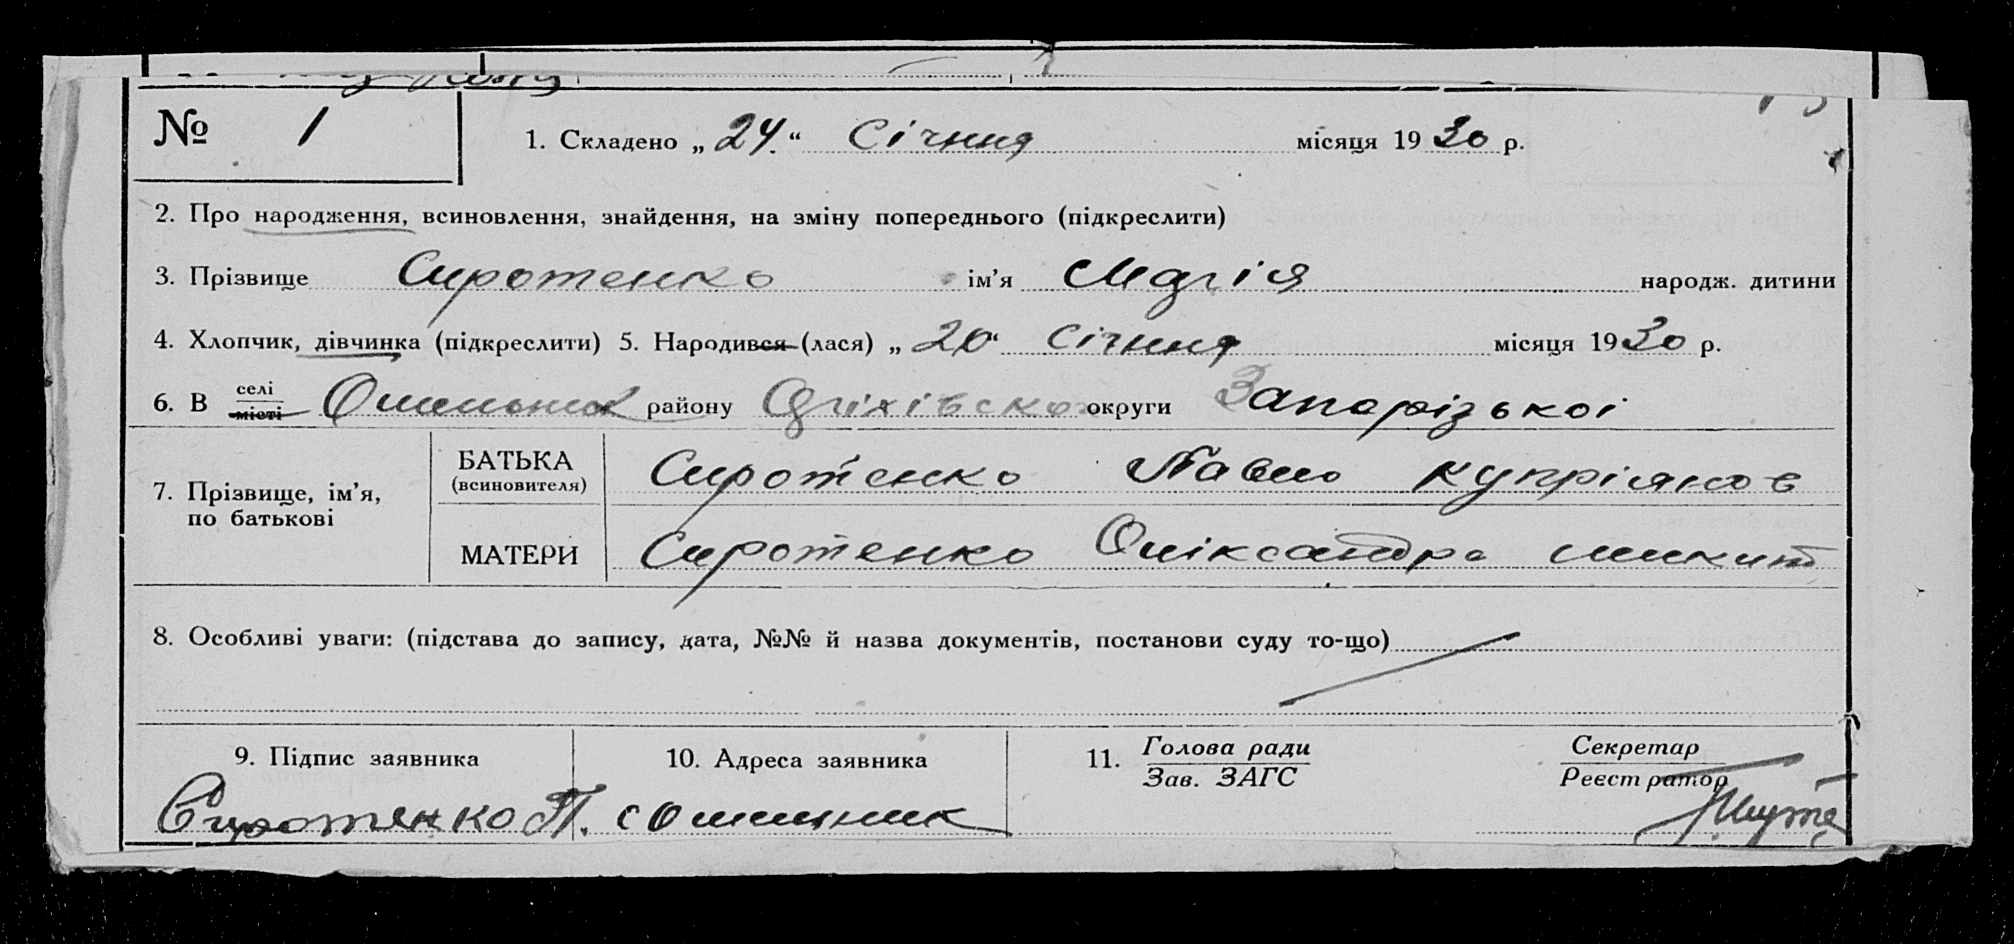 № 1
1. Складено „ 24 “ Січня місяця 1930 р.
2. Про народження, всиновлення, знайдення, на зміну попереднього (підкреслити)
3. Прізвище Сиротенко ім’я Марія народж. дитини
4. Хлопчик, дівчинка (підкреслити) 5. Народився (лася) „ 20 “ Січня місяця 1930 р.
6. В селі місті району Оріхівско округи Запорізької
7. Прізвище, ім’я, по батькові
БАТЬКА (всиновителя) Сиротенко Павло Купріянов
МАТЕРИ Сиротенко Оліксандра Микит
8. Особливі уваги: (підстава до запису, дата, №№ й назва документів, постанови суду то-що)
9. Підпис заявника 10. Адреса заявника 11. Голова ради Секретар
Зав. ЗАГС Реєстратор
Сиротенко П. с